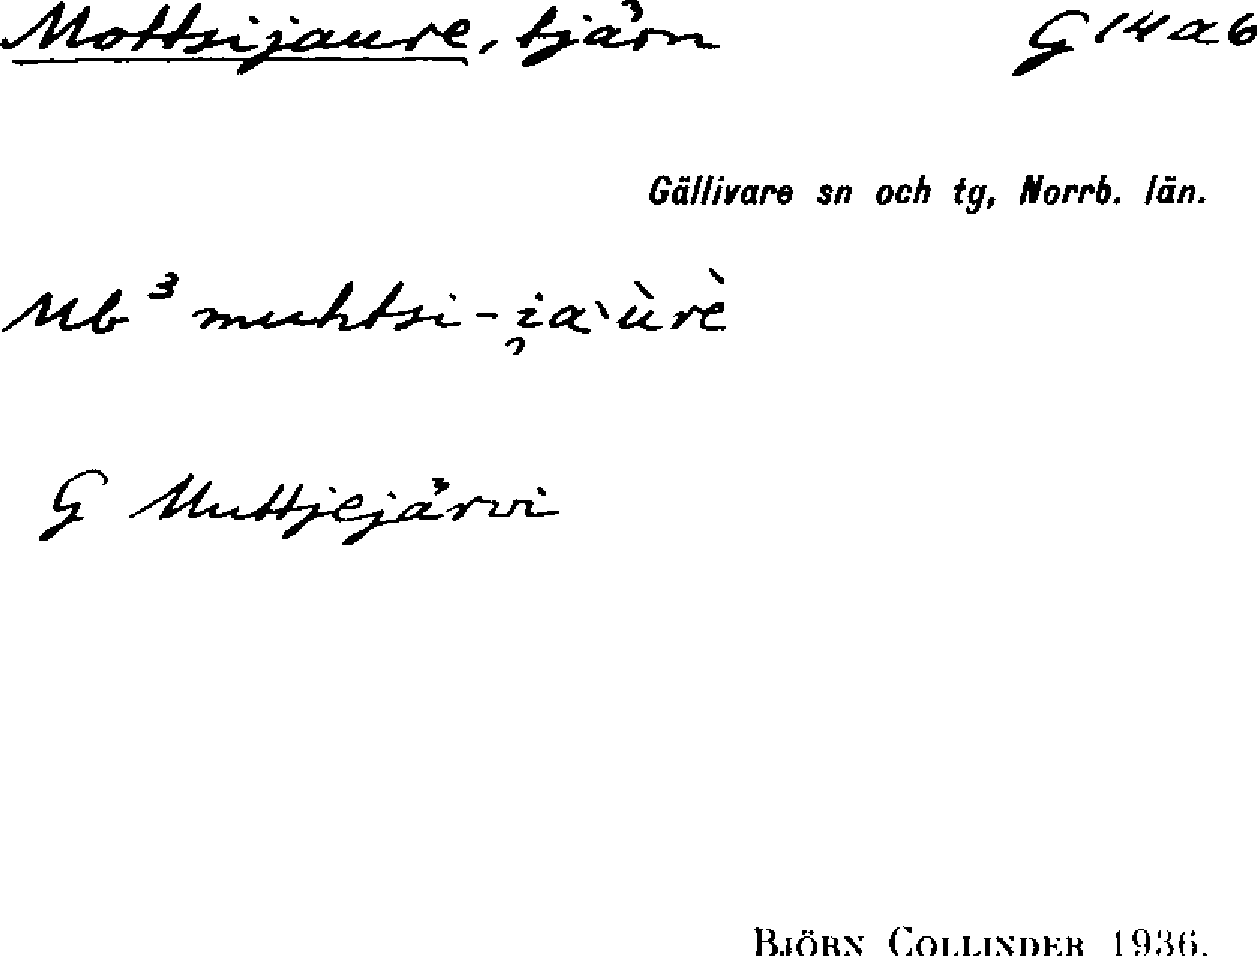 Mottsijaure, tjärn G 14 a 6
Gällivare sn och tg, Norrb. län.
Mb³ muhtsi-i̯a`ùrè
G Muttjejärvi
BJÖRN COLLINDER 1936.